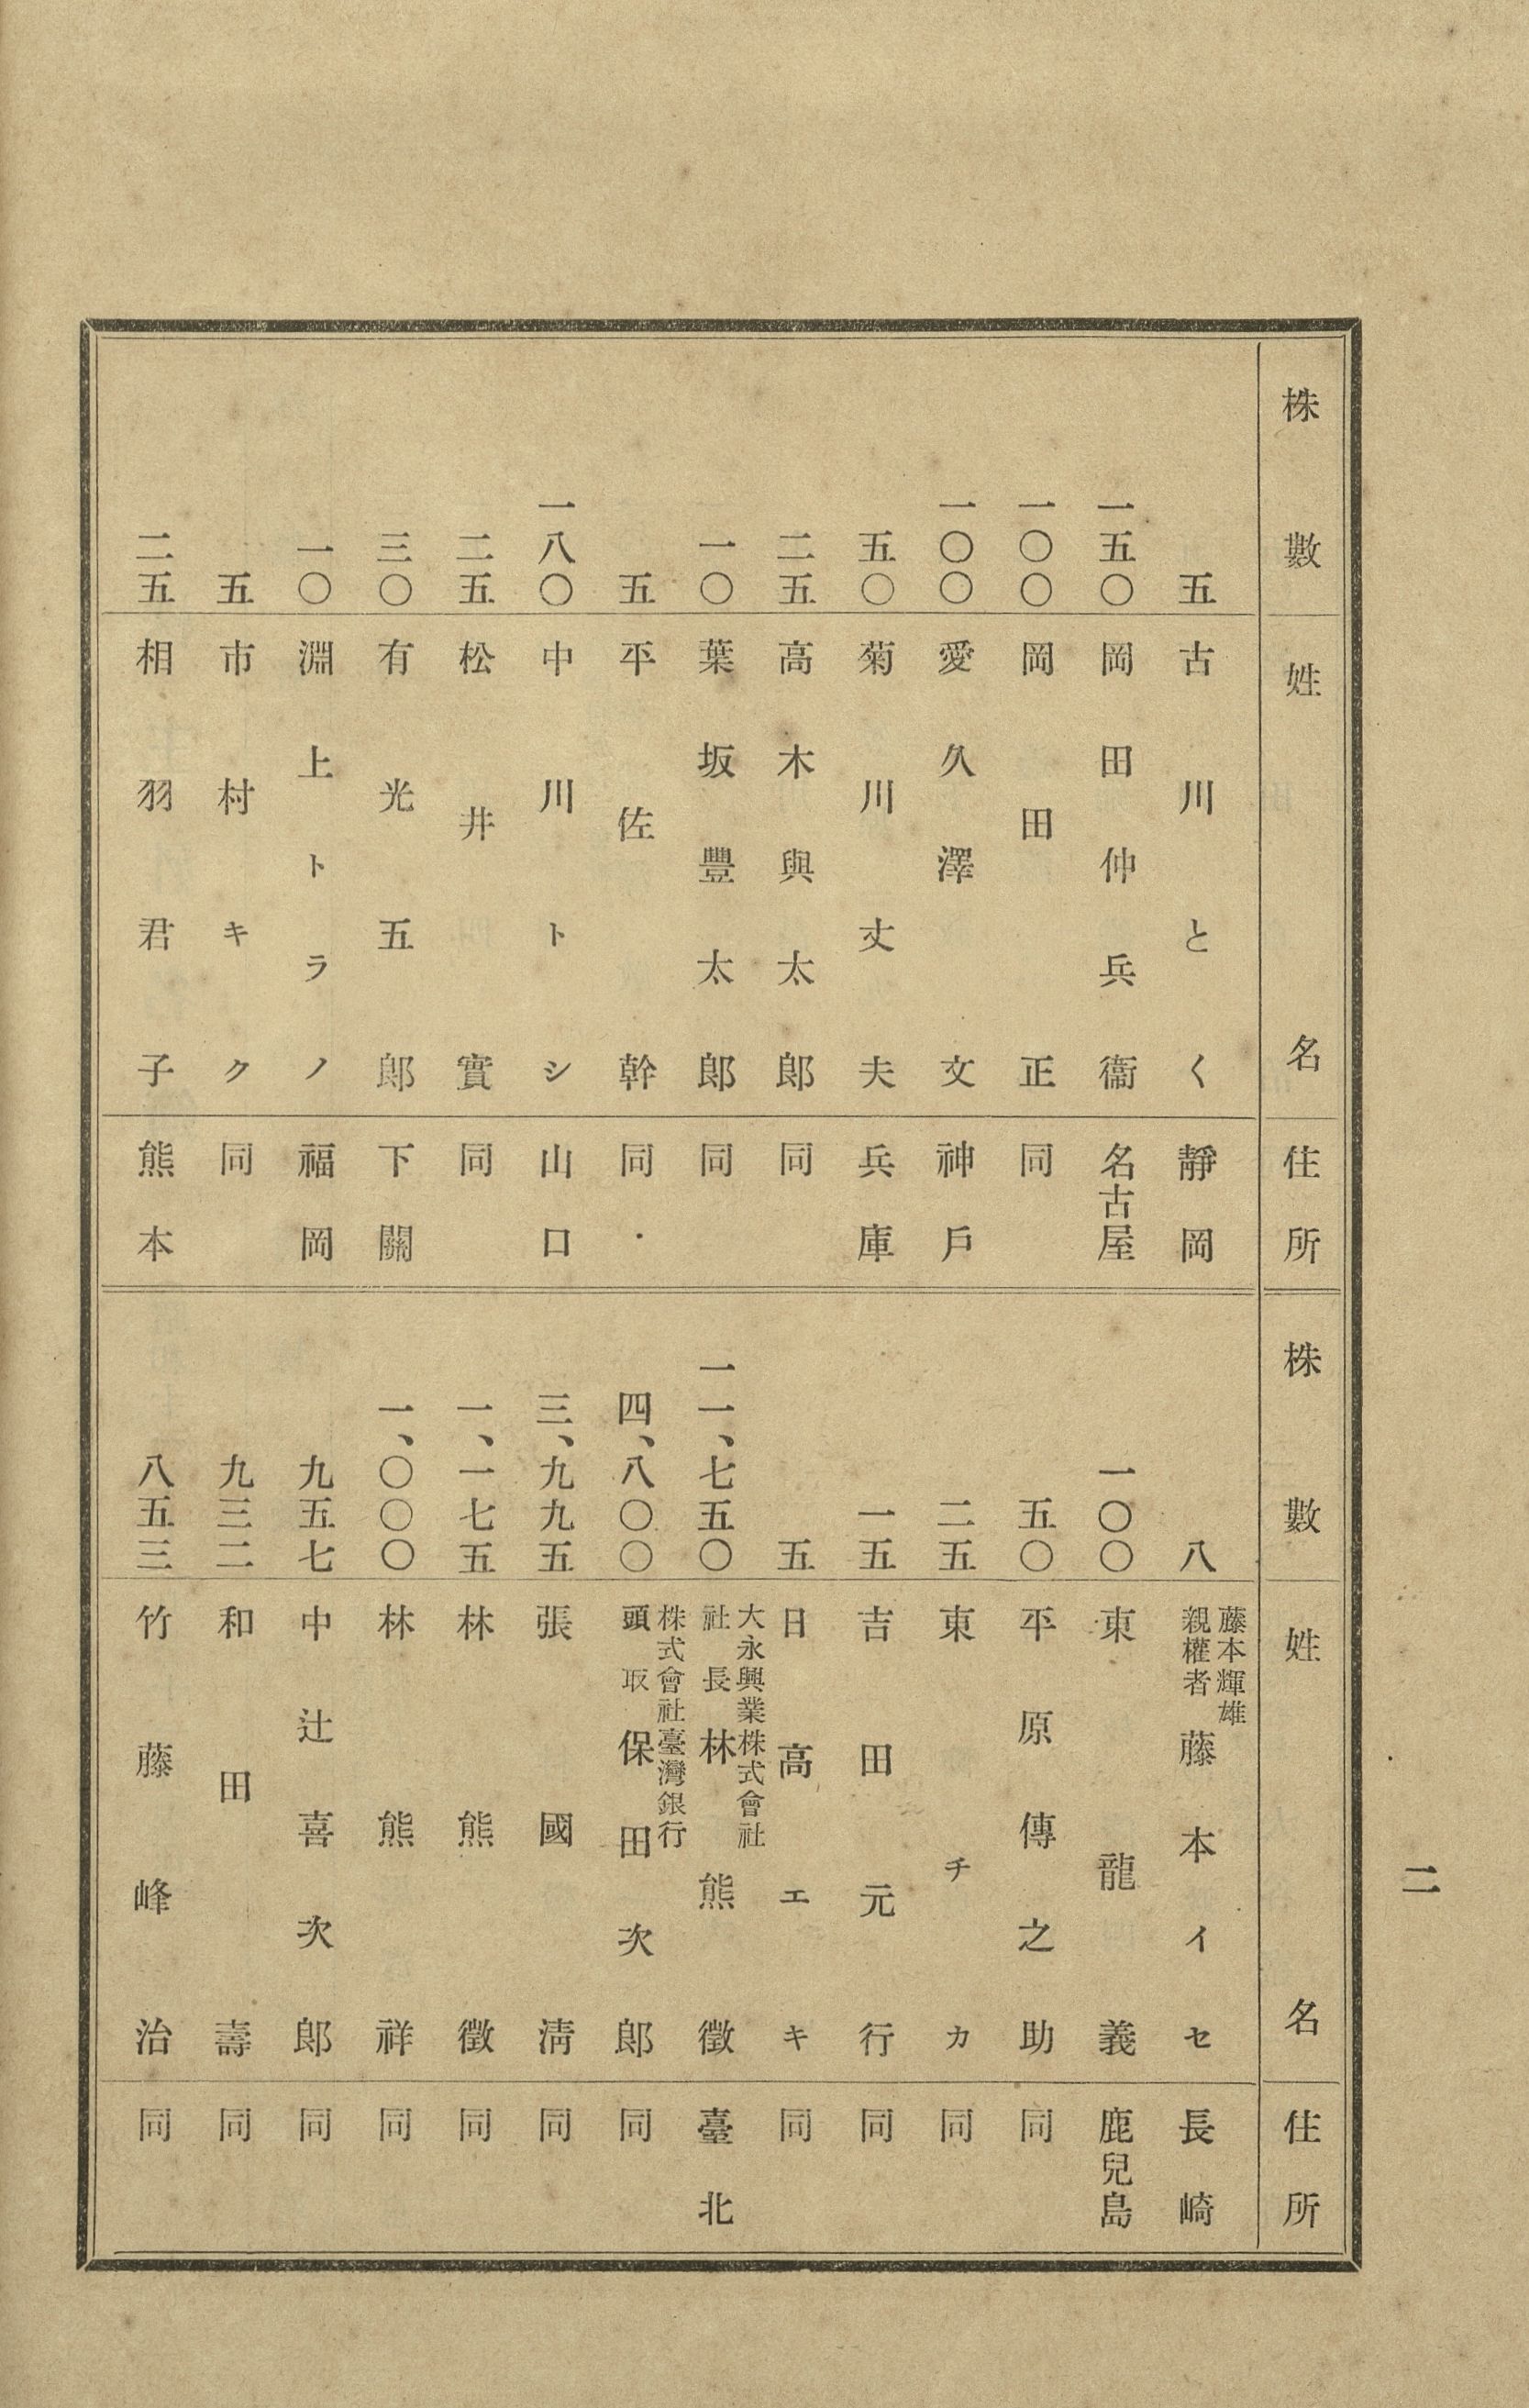 株數 姓名 住所
五 古川とく 靜岡
一五〇 岡田仲兵衞 名古屋
一〇〇 岡田正 同
一〇〇 愛久澤文 神戶
五〇 菊川丈夫 兵庫
二五 高木與太郞 同
一〇 葉坂豐太郞 同
五 平佐幹 同
一八〇 中川トシ 山口
二五 松井實 同
三〇 有光五郞 下關
一〇 淵上トラノ 福岡
五 市村キク 同
二五 相羽君子 熊本
株數 姓名 住所
八 藤本輝雄親權者 藤本イセ 長崎
一〇〇 東龍義 鹿兒島
五〇 平原傳之助 同
二五 東チカ 同
一五 吉田元行 同
五 日高エキ 同
一一、七五〇 大永興業株式會社社長 林熊徵 臺北
四、八〇〇 株式會社臺灣銀行頭取 保田次郞 同
三、九九五 張國淸 同
一、一七五 林熊徵 同
一、〇〇〇 林熊祥 同
九五七 中辻喜次郞 同
九三二 和田壽 同
八五三 竹藤峰治 同
二